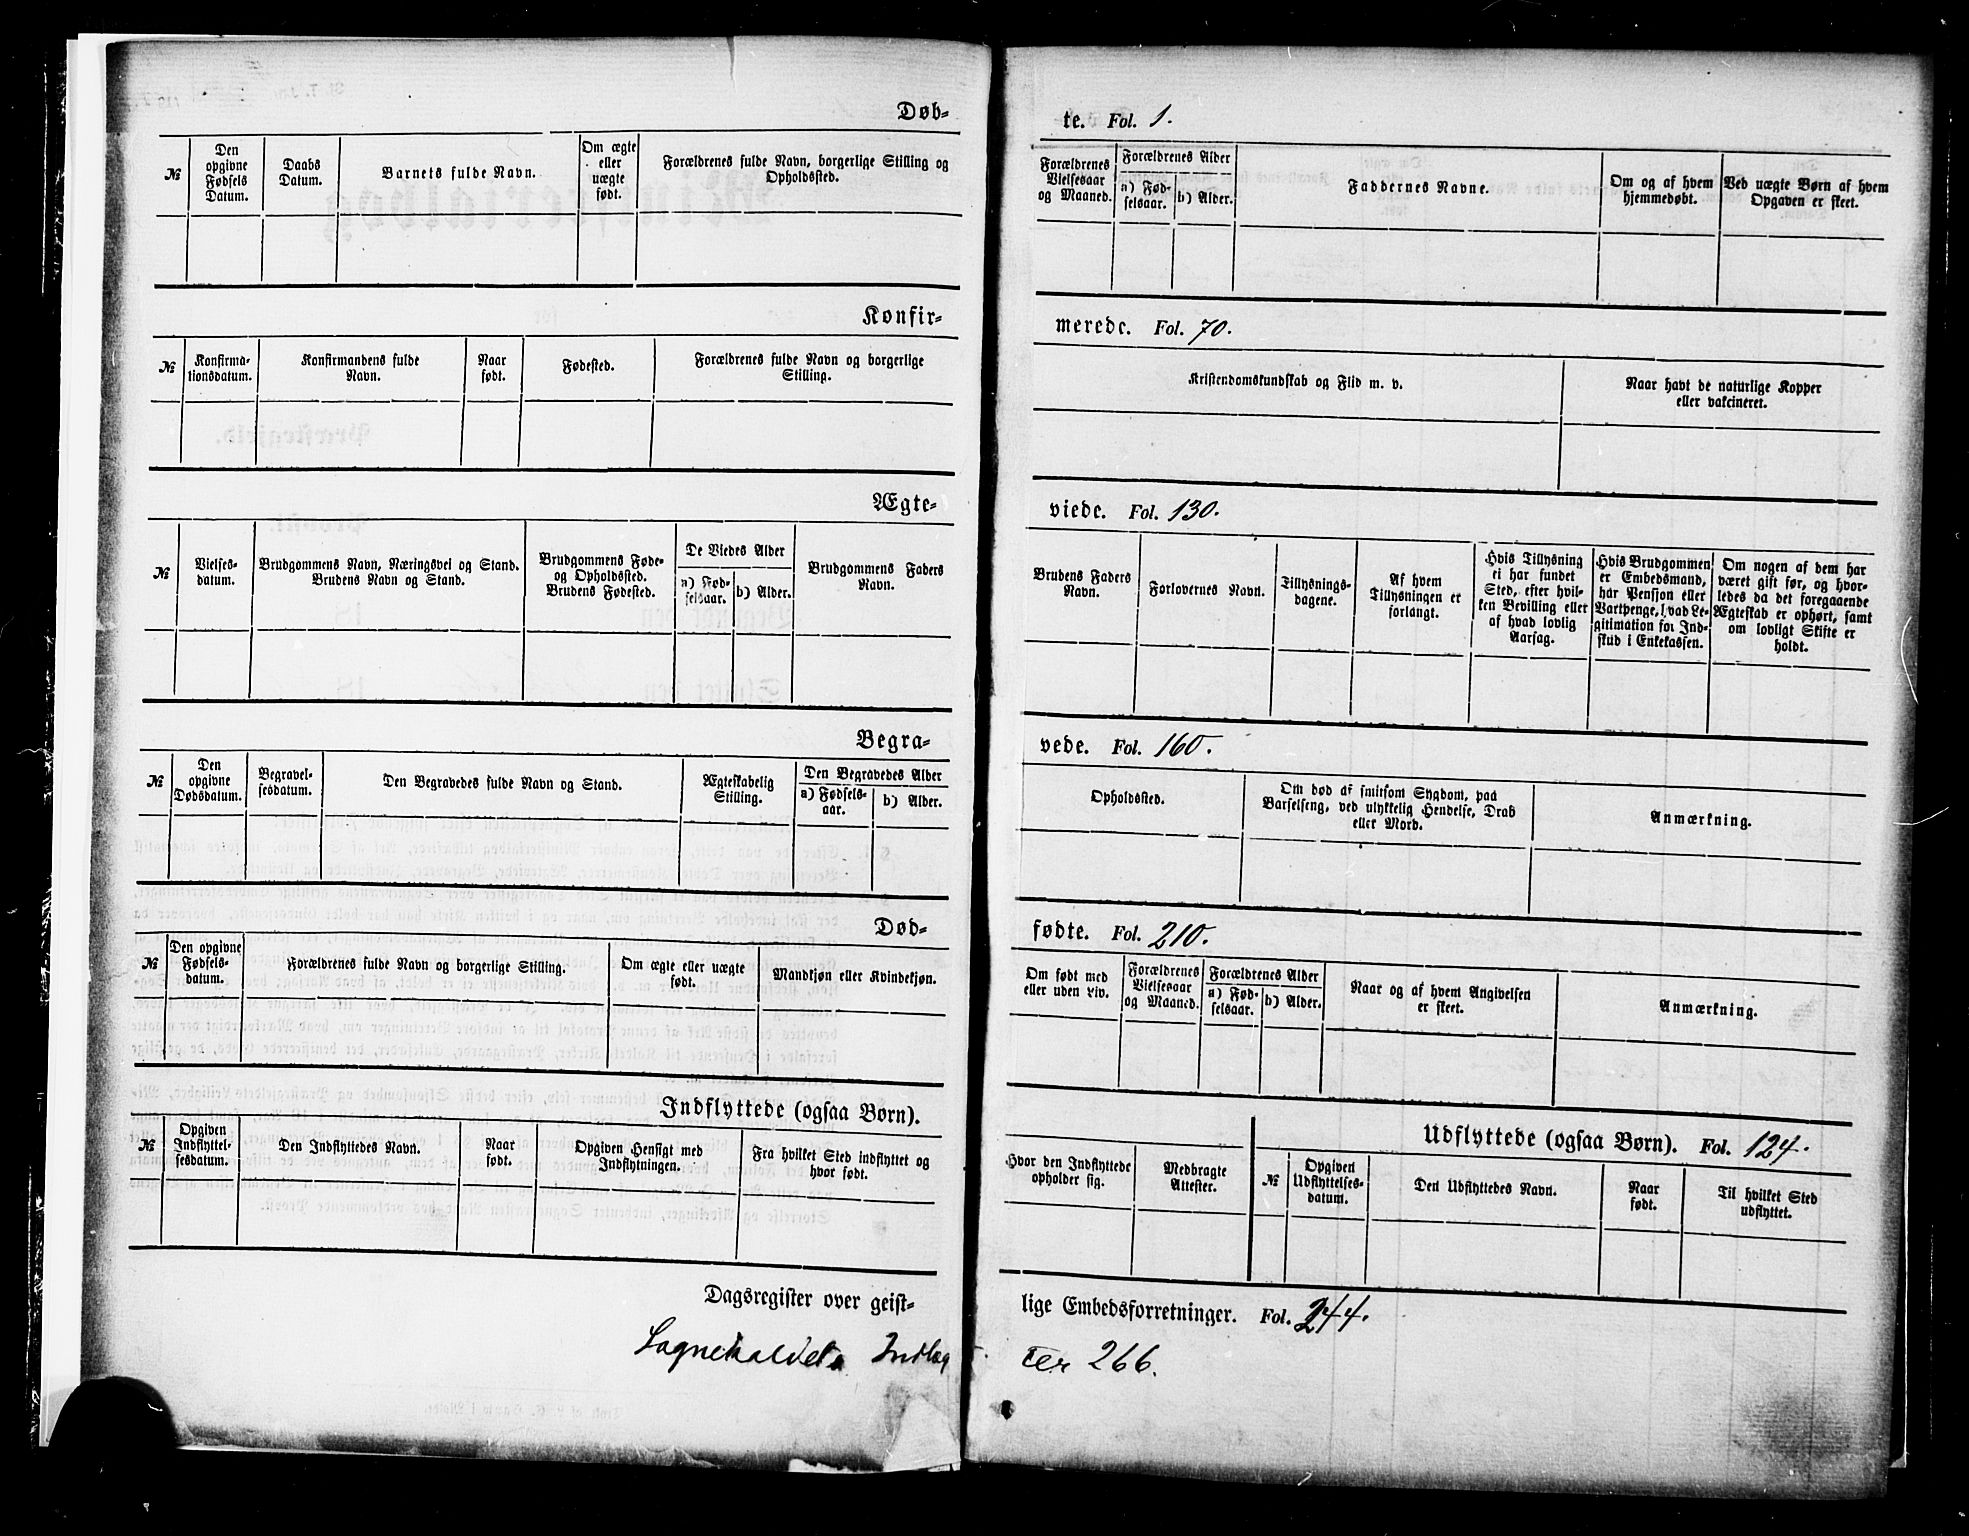 Døb-
№
Den opgivne Fødsels Datum.
Daabs Datum.
Barnets fulde Navn.
Om ægte eller uægte født.
Forældrenes fulde Navn, borgerlige Stilling og Opholdsted.
Konfir-
№
Konfirma-tionsdatum.
Konfirmandens fulde Navn.
Naar født.
Fødested.
Forældrenes fulde Navn og borgerlige Stilling.
Ægte-
№
Vielses-datum.
Brudgommens Navn, Næringsvei og Stand. Brudens Navn og Stand.
Brudgommens Føde- og Opholdsted. Brudens Fødested.
De Viedes Alder
a) Fød-selsaar.
b) Alder.
Brudgommens Faders Navn.
Begra-
№
Den opgivne Dødsdatum.
Begravel-sesdatum.
Den Begravedes fulde Navn og Stand.
Ægteskabelig Stilling.
Den Begravedes Alder
a) Fødsels-aar.
b) Alder.
Død-
№
Den opgivne Fødsels-datum.
Forældrenes fulde Navn og borgerlige Stilling.
Om ægte eller uægte født.
Mandkjøn eller Kvindekjøn.
Indflyttede (ogsaa Børn).
№
Opgiven Indflyttel-sesdatum.
Den Indflyttedes Navn.
Naar født.
Opgiven Hensigt med Indflytningen.
Fra hvilket Sted indflyttet og hvor født.
Dagsregister over geist-
Sognekaldets Indtæg
te. Fol. 1.
Forældrenes Vielsesaar og Maaned.
Forældrenes Alder
a) Fød-selsaar.
b) Alder.
Faddernes Navne.
Om og af hvem hjemmedøbt.
Ved uægte Børn af hvem Opgaven er skeet.
merede. Fol. 70.
Kristendomskundskab og Flid m. v.
Naar havt de naturlige Kopper eller vakcineret.
viede. Fol. 130.
Brudens Faders Navn.
Forlovernes Navn.
Tillysnings-dagene.
Af hvem Tillysningen er forlangt.
Hvis Tillysning ei har fundet Sted, efter hvil-ken Bevilling eller af hvad lovlig Aarsag.
Hvis Brudgommen er Embedsmand, har Pensjon eller Vartpenge, hvad Le-gitimation for Ind-skud i Enkekassen.
Om nogen af dem har været gift før, og hvor-ledes da det foregaaende Ægteskab er ophørt, samt om lovligt Skifte er holdt.
vede. Fol. 160.
Opholdsted.
Om død af smitsom Sygdom, paa Barselseng, ved ulykkelig Hendelse, Drab eller Mord.
Anmærkning.
fødte. Fol. 210.
Om født med eller uden Liv.
Forældrenes Vielsesaar og Maaned.
Forældrenes Alder
a) Fød-selsaar.
b) Alder.
Naar og af hvem Angivelsen er skeet.
Anmærkning.
Udflyttede (ogsaa Børn). Fol. 124.
Hvor den Indflyttede opholder sig.
Medbragte Attester.
№
Opgiven Udflyttelses-datum.
Den Udflyttedes Navn.
Naar født.
Til hvilket Sted udflyttet.
lige Embedsforretninger. Fol. 244.
ter 266.